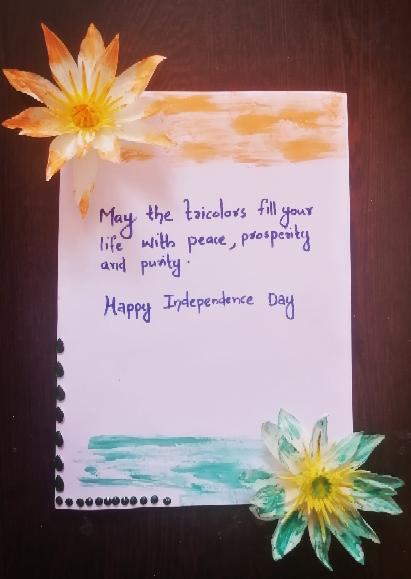 May the tricolors fill your
life with peace, prosperity
and purity.
Happy Independence Day